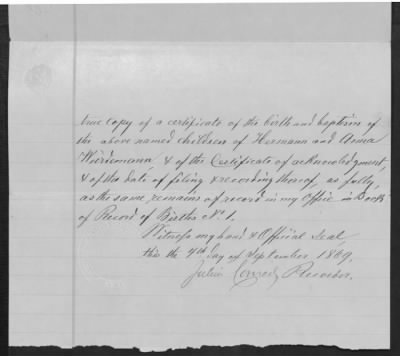 true copy of a certificate of the birth and baptism of
the above named children of Hermann and Anna
Wuriemann & of the Certificate of acknowledgment,
& of the date of filing & recording thereof, as fully,
as the same remains of record in my Office in Book
of Record of Births No 1.
Witness my hand & Official Seal,
this the 4th day of September 1869.
Julius Conrad, Recorder.